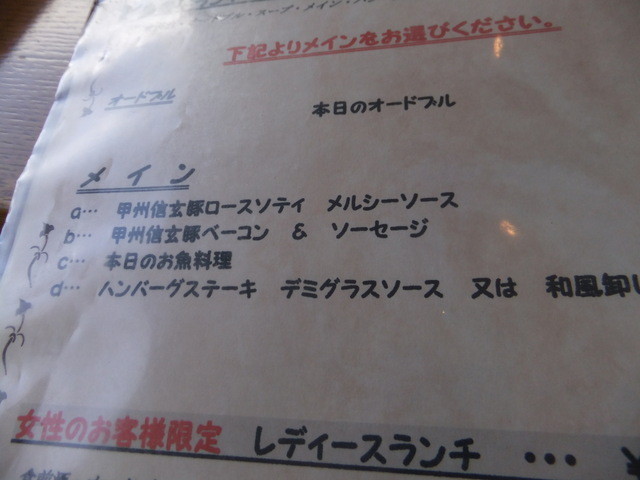 ドブル・スープ・メイン・パン
下記よりメインをお選びください。
オードブル
本日のオードブル
メイン
a… 甲州信玄豚ロースソテイ メルシーソース
b… 甲州信玄豚ベーコン & ソーセージ
c… 本日のお魚料理
d… ハンバーグステーキ デミグラスソース 又は 和風卸し
女性のお客様限定 レディースランチ …